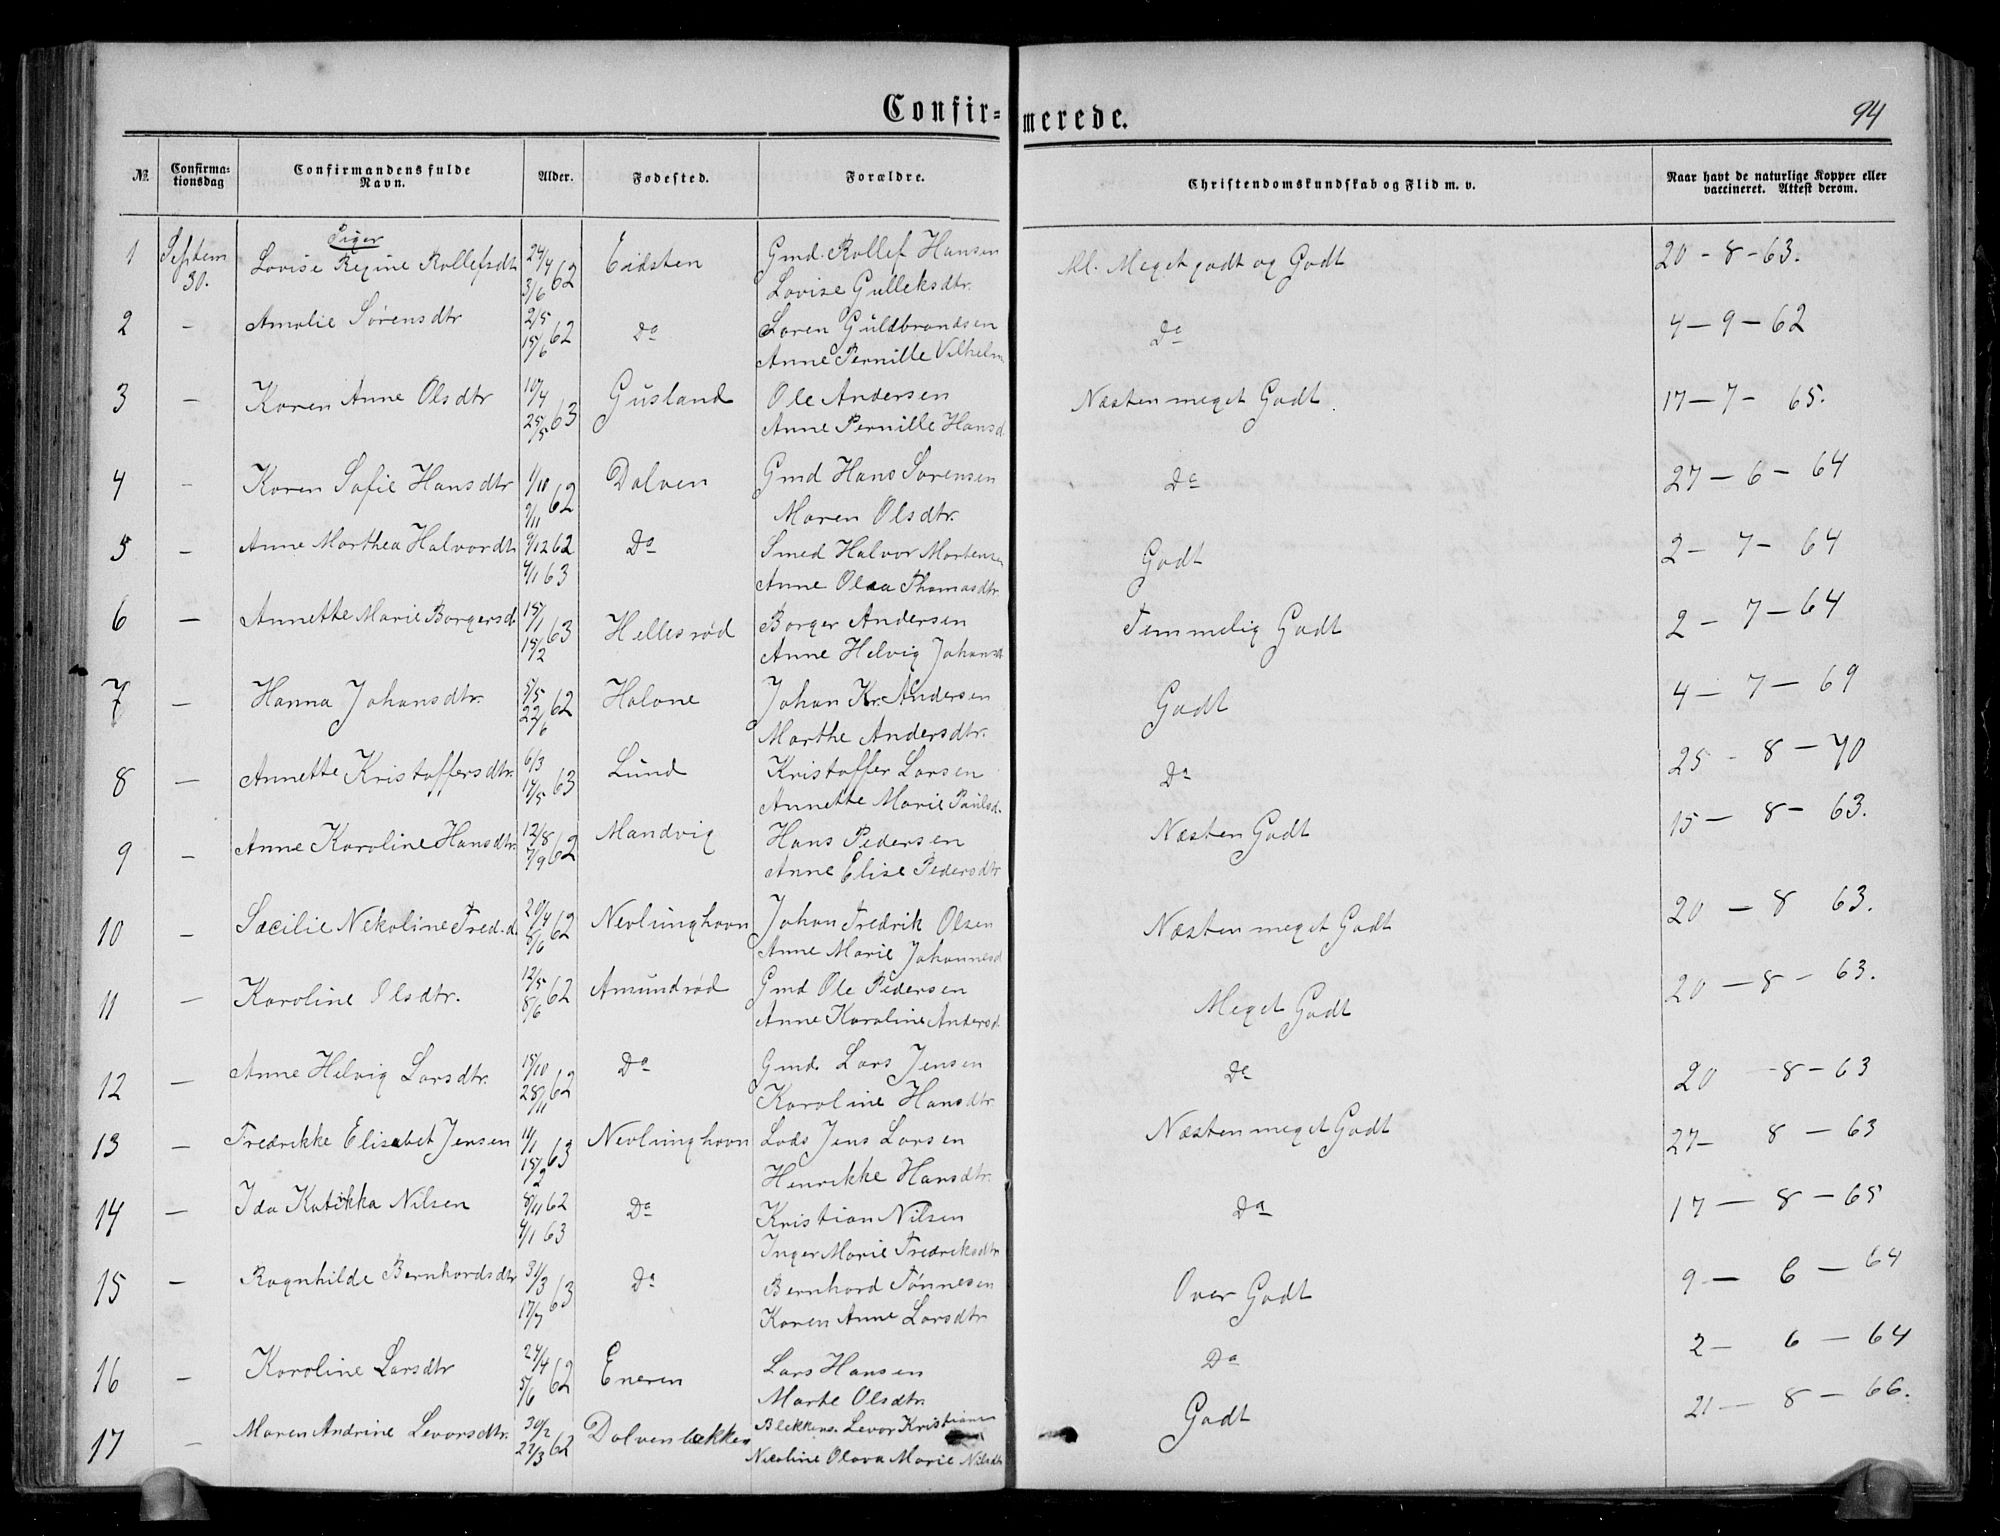 Confir-merede.
94
№
Confirma-
tionsdag
Confirmandens fulde
Navn.
Alder.
Fødested.
Forældre.
Christendomskundskab og Flid m. v.
Naar havt de naturlige Kopper eller
vaccineret. Attest derom.
Piger
1 Septem 30. Lovise Regine Rollefsdt 24/4 3/6 62 Eidsten Gmd. Rollef Hansen Kl. Meget godt og Godt 20-8-63.
Lovise Gulleksdtr.
2 - Amalie Sørensdtr 2/5 15/6 62 Do Søren Guldbrandsen Do 4-9-62
Anne Pernille Vilhelm
3 - Karen Anne Olsdtr 10/4 25/5 63 Gusland Ole Andersen Næsten meget Godt 17-7-65.
Anne Pernille Hansd
4 - Karen Sofie Hansdtr 1/10 9/11 62 Dolven Gmd Hans Sørensen Do 27-6-64
Maren Olsdtr.
5 - Anne Marthea Halvordt 9/12 62 4/1 63 Do Smed Halvor Mortensen Godt 2-7-64
Anne Olea Thomasdtr
6 - Annette Marie Borgersd 15/1 15/2 63 Hellesrød Borger Andersen Temmelig Godt 2-7-64
Anne Helvig Johansd
7 - Hanna Johansdtr. 5/5 22/6 62 Halone Johan Kr. Andersen Godt 4-7-69
Marthe Andersdtr.
8 - Annette Kristoffersdtr. 6/3 17/5 63 Lund Kristoffer Larsen Do 25-8-70
Annette Marie Paulsd.
9 - Anne Karoline Hansdtr. 12/8 7/9 62 Mandvig Hans Pedersen Næsten Godt 15-8-63.
Anne Elise Pedersdtr
10 - Sæcilie Nekoline Fred.d 20/4 8/6 62 Nevlunghavn Johan Fredrik Olsen Næsten meget Godt 20-8 63.
Anne Marie Johannesd
11 - Karoline Olsdtr. 12/5 8/6 62 Amundrød Gmd Ole Pedersen Meget Godt 20-8-63.
Anne Karoline Andersd.
12 - Anne Helvig Larsdtr. 15/10 28/11 62 Do Gmd. Lars Jensen Do 20-8-63
Karoline Hansdtr
13 - Fredrikke Elisabet Jensen 11/1 15/2 63 Nevlunghavn Lods Jens Larsen Næsten meget Godt 27-8-63
Henrikke Hansdtr.
14 - Ida Katikka Nilsen 8/11 62 4/1 63 Do Kristian Nilsen Do 17-8-65
Inger Marie Fredriksdtr
15 - Ragnhilde Bernhardsdtr 31/3 17/7 63 Do Bernhard Tønnesen Over Godt 9-6-64
Karen Anne Larsdtr
16 - Karoline Larsdtr 24/4 5/6 62 Eneren Lars Hansen Do 2-6-64
Marte Olsdtr.
17 - Maren Andrine Levorsdtr. 30/2 22/3 62 Dolven Blekkens. Levor Kristians Godt 21-8-66.
Nicoline Olava Marie Nilsdt